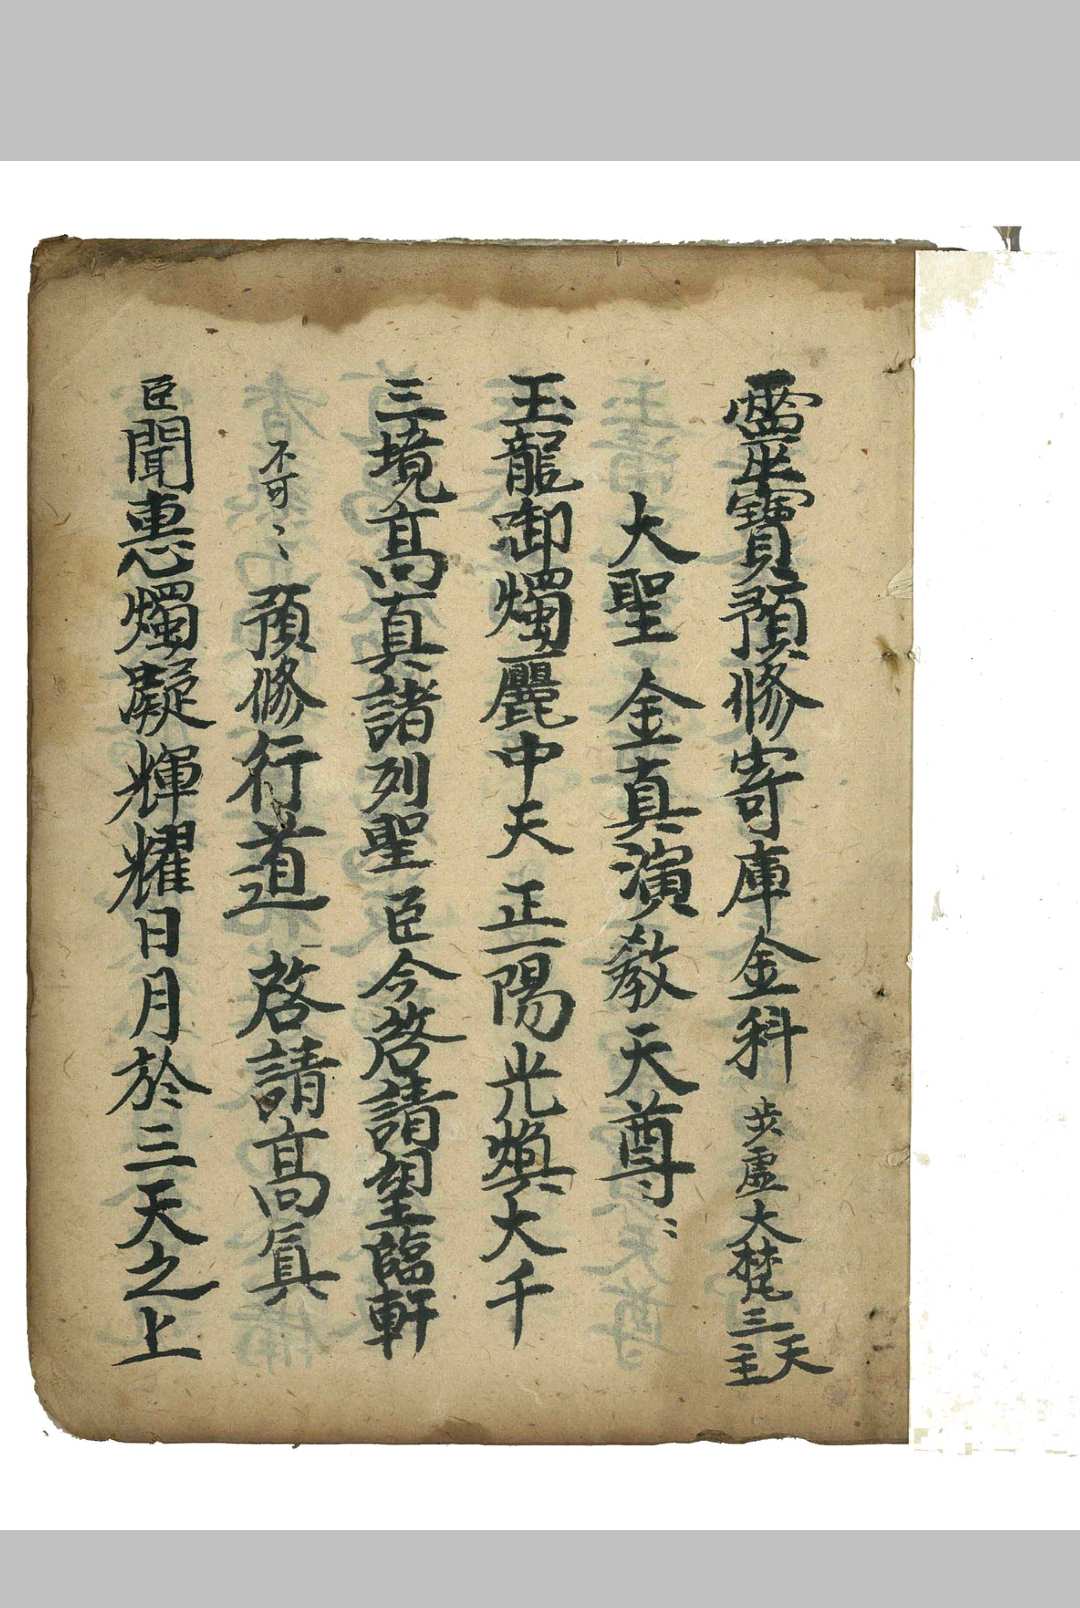 靈坐寶預修寄庫金科 步虛大梵三天主
大聖 金真演教天尊〻
玉龍御燭麗中天 正一陽光煥大千
三境高真諸列聖 臣今啓請望臨軒
不可〻 預修行道 啓請高真
臣聞惠燭凝輝耀日月於三天之上